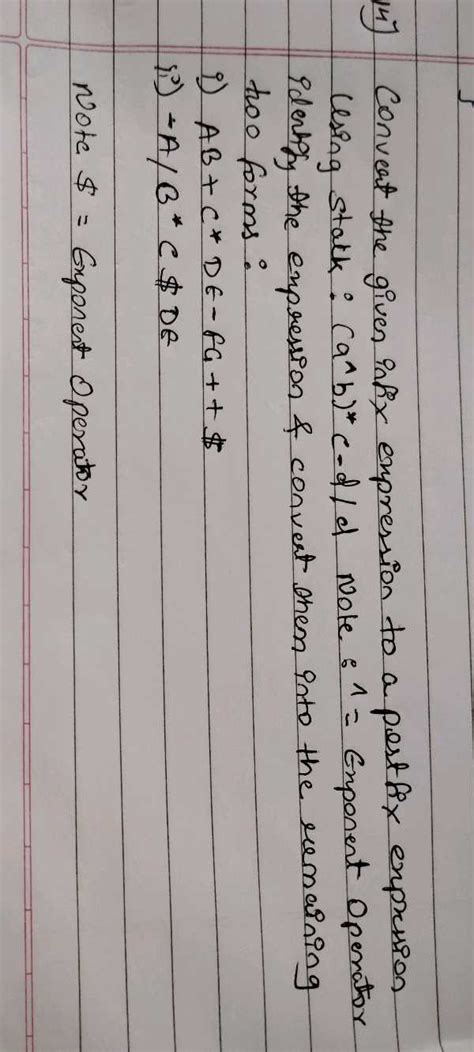 14)
Convert the given infix expression to a postfix expression
Using stack : (a^b)*c-d/d Note : ^ = Exponent Operator
identify the expression & convert them into the remaining
two forms :
i) AB+C*DE-FG++$
ii) -A/B*C$DE
Note $ = Exponent Operator